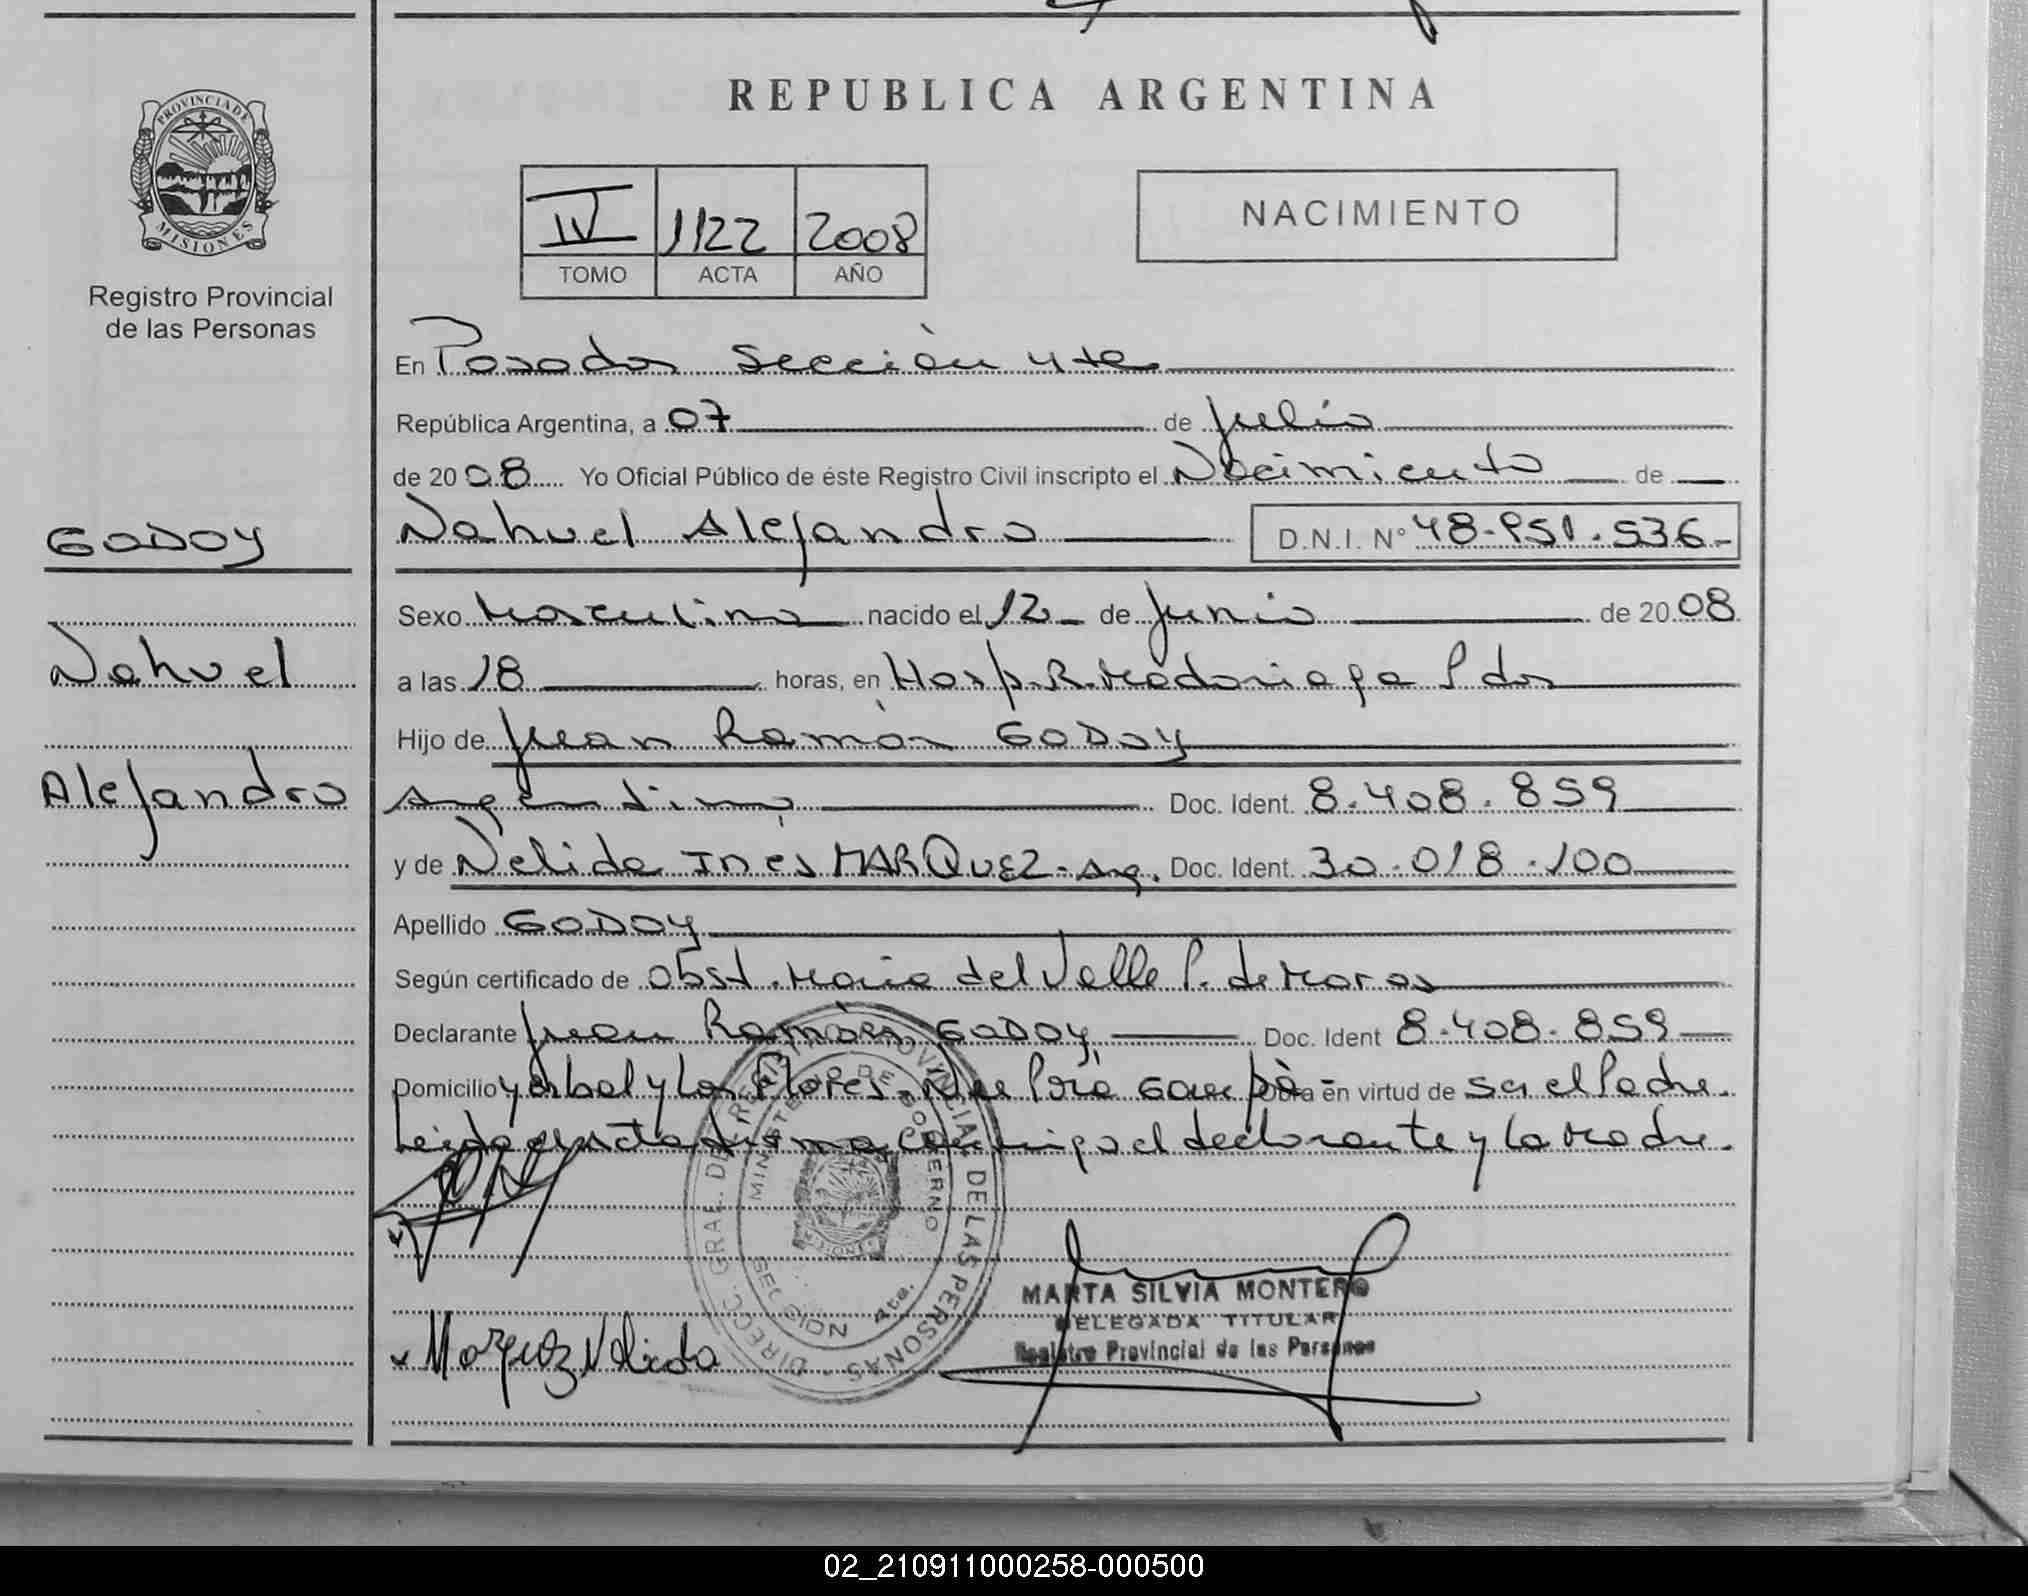 REPUBLICA ARGENTINA
PROVINCIA DE
MISIONES
Registro Provincial
de las Personas
IV 1122 2008
TOMO ACTA AÑO
NACIMIENTO
En Posadas Sección 4ta
República Argentina, a 07 de Julio
de 2008 Yo Oficial Público de éste Registro Civil inscripto el Nacimiento de
Nahuel Alejandro D.N.I. N° 48.951.536
GODOY
Nahuel
Alejandro
Sexo Masculino nacido el 12 de Junio de 2008
a las 18 horas, en Hosp. R. Madariaga Pdas
Hijo de Juan Ramón GODOY
Argentino Doc. Ident. 8.408.859
y de Nelida Inés MARQUEZ - Arg. Doc. Ident. 30.018.100
Apellido GODOY
Según certificado de Obst. Maria del Valle P. de
Declarante Juan Ramón GODOY Doc. Ident 8.408.859
Domicilio yerbal y Las Flores en virtud de ser el Padre.
Leida el acta firma conmigo el declarante y la Madre.
DIRECC. GRAL. DEL REGISTRO PROVINCIAL DE LAS PERSONAS
MINISTERIO DE GOBIERNO
SECCION 4ta.
MARTA SILVIA MONTERO
DELEGADA TITULAR
Registro Provincial de las Personas
Marquez Nelida
02_210911000258-000500